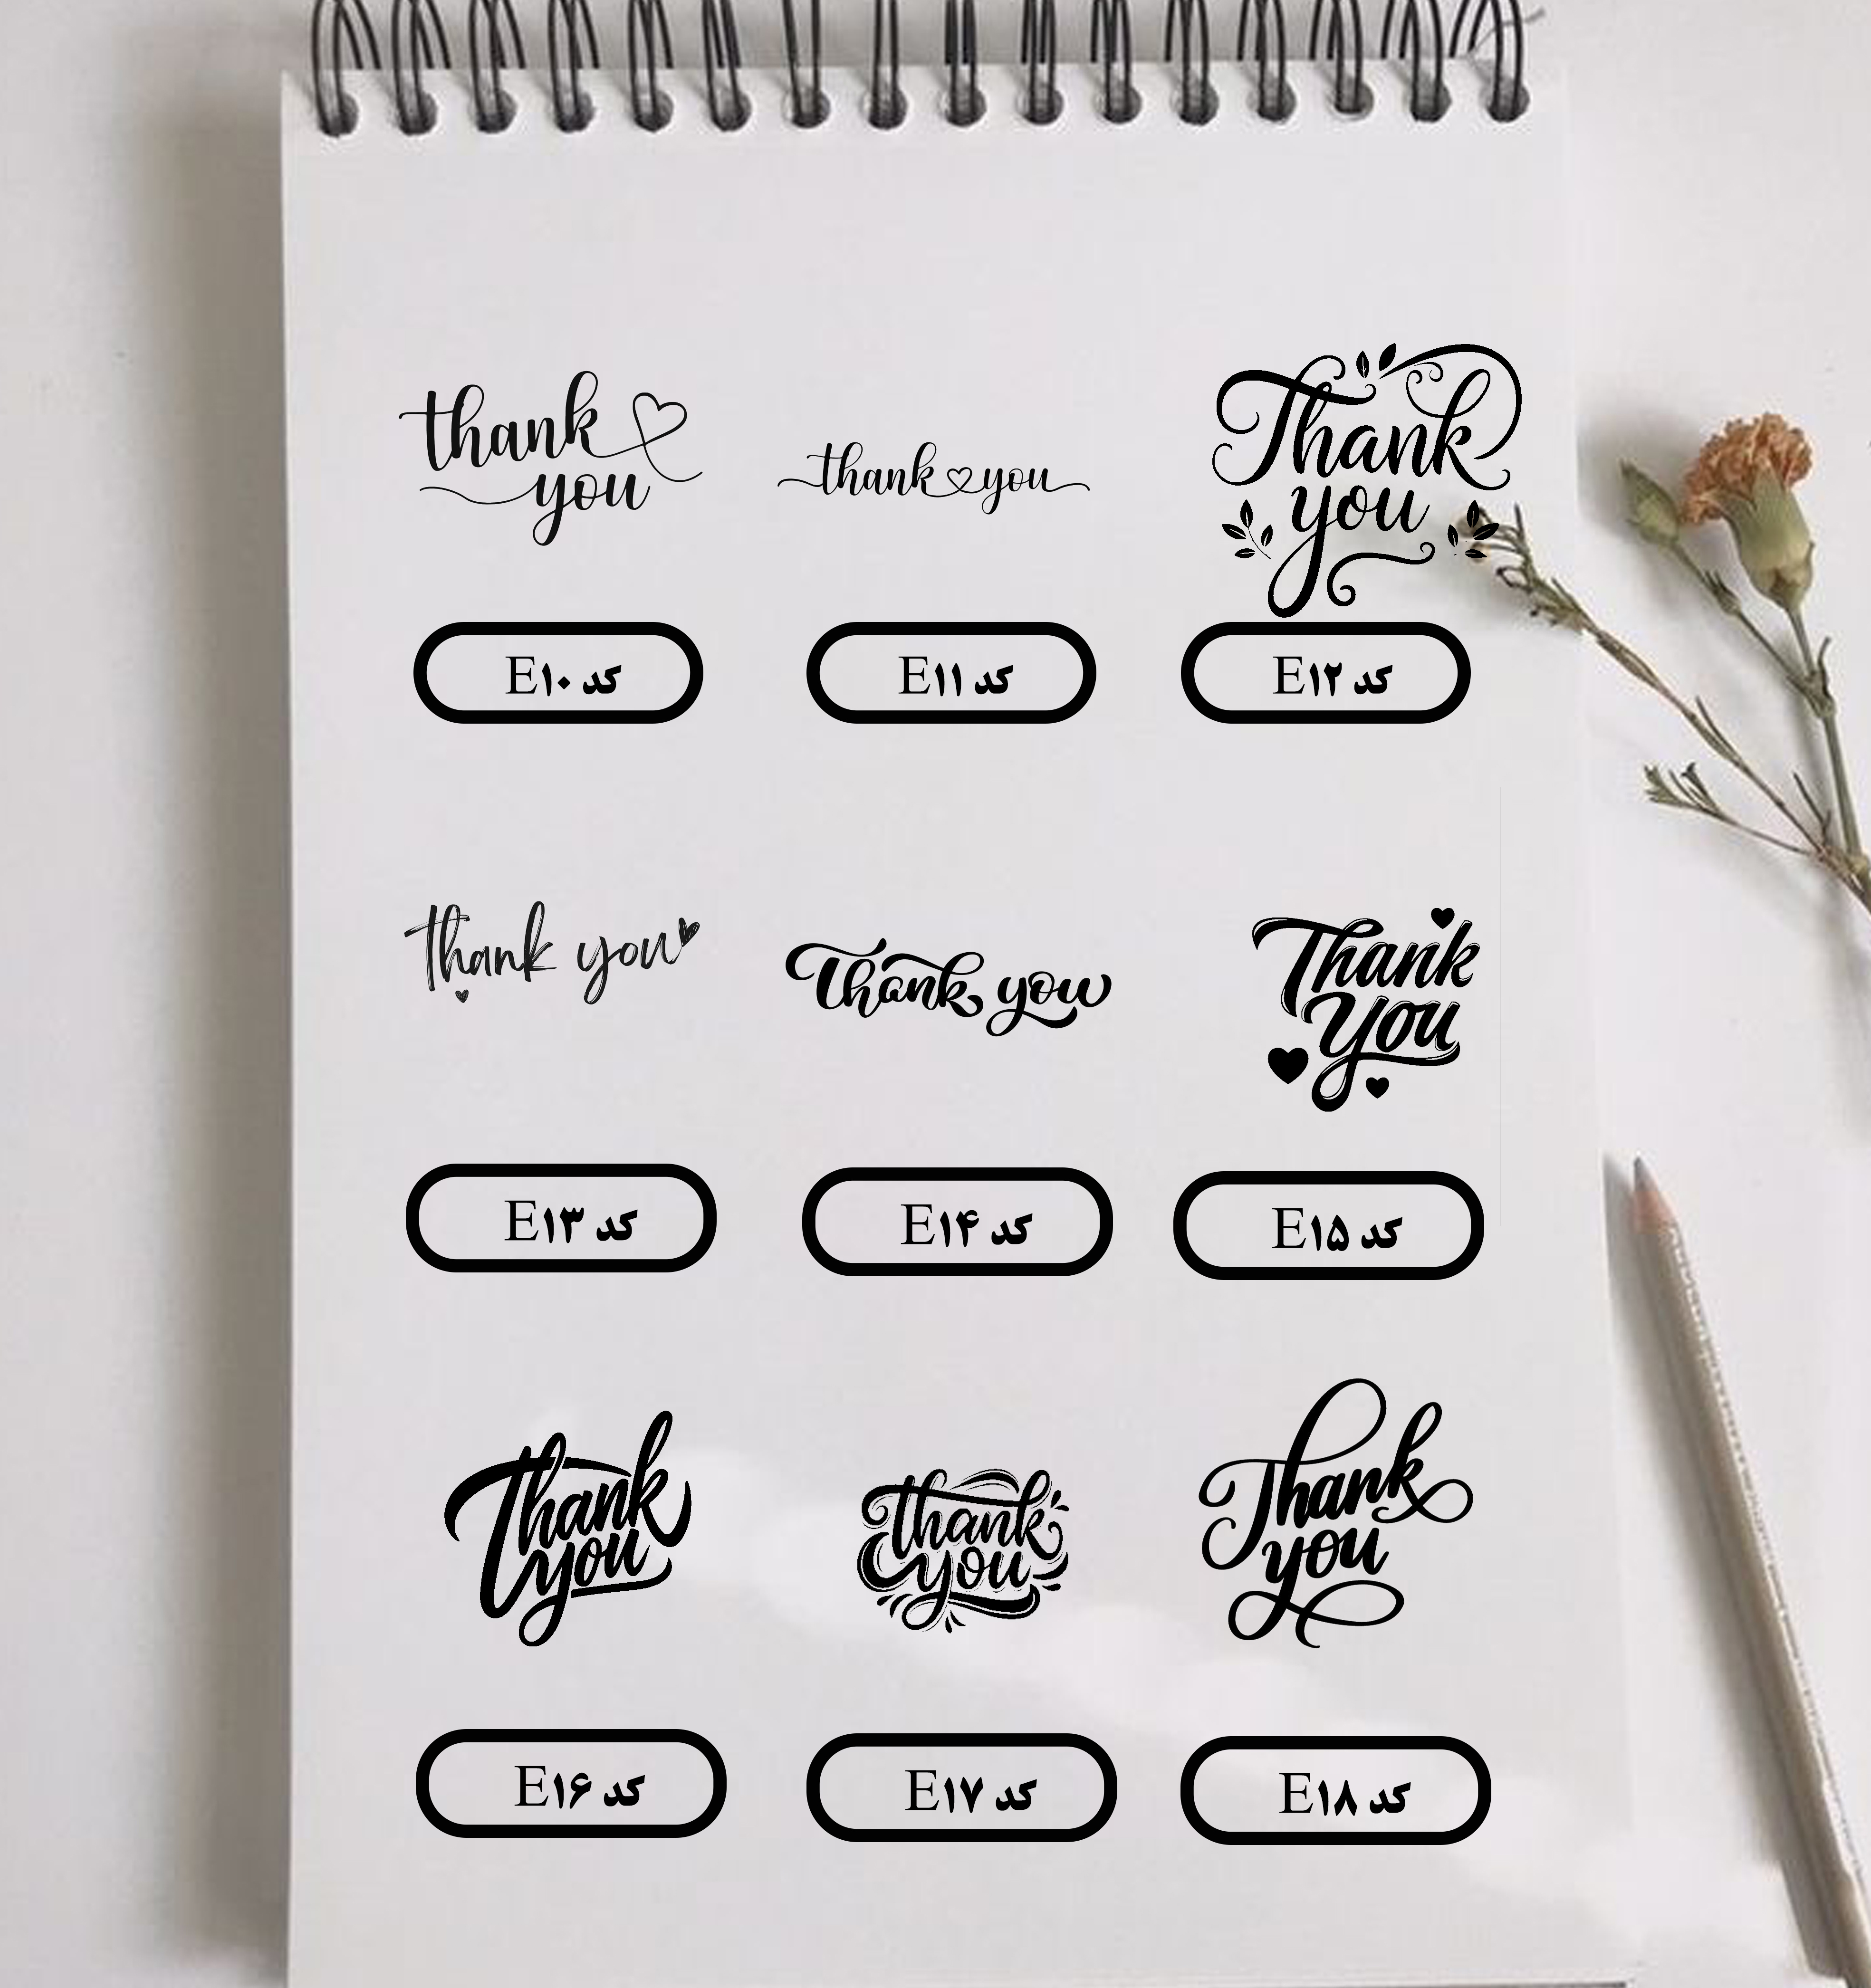 thank
you
thank you
Thank
you
کد E۱۰
کد E۱۱
کد E۱۲
thank you
Thank you
Thank
You
کد E۱۳
کد E۱۴
کد E۱۵
Thank
you
thank
you
Thank
you
کد E۱۶
کد E۱۷
کد E۱۸